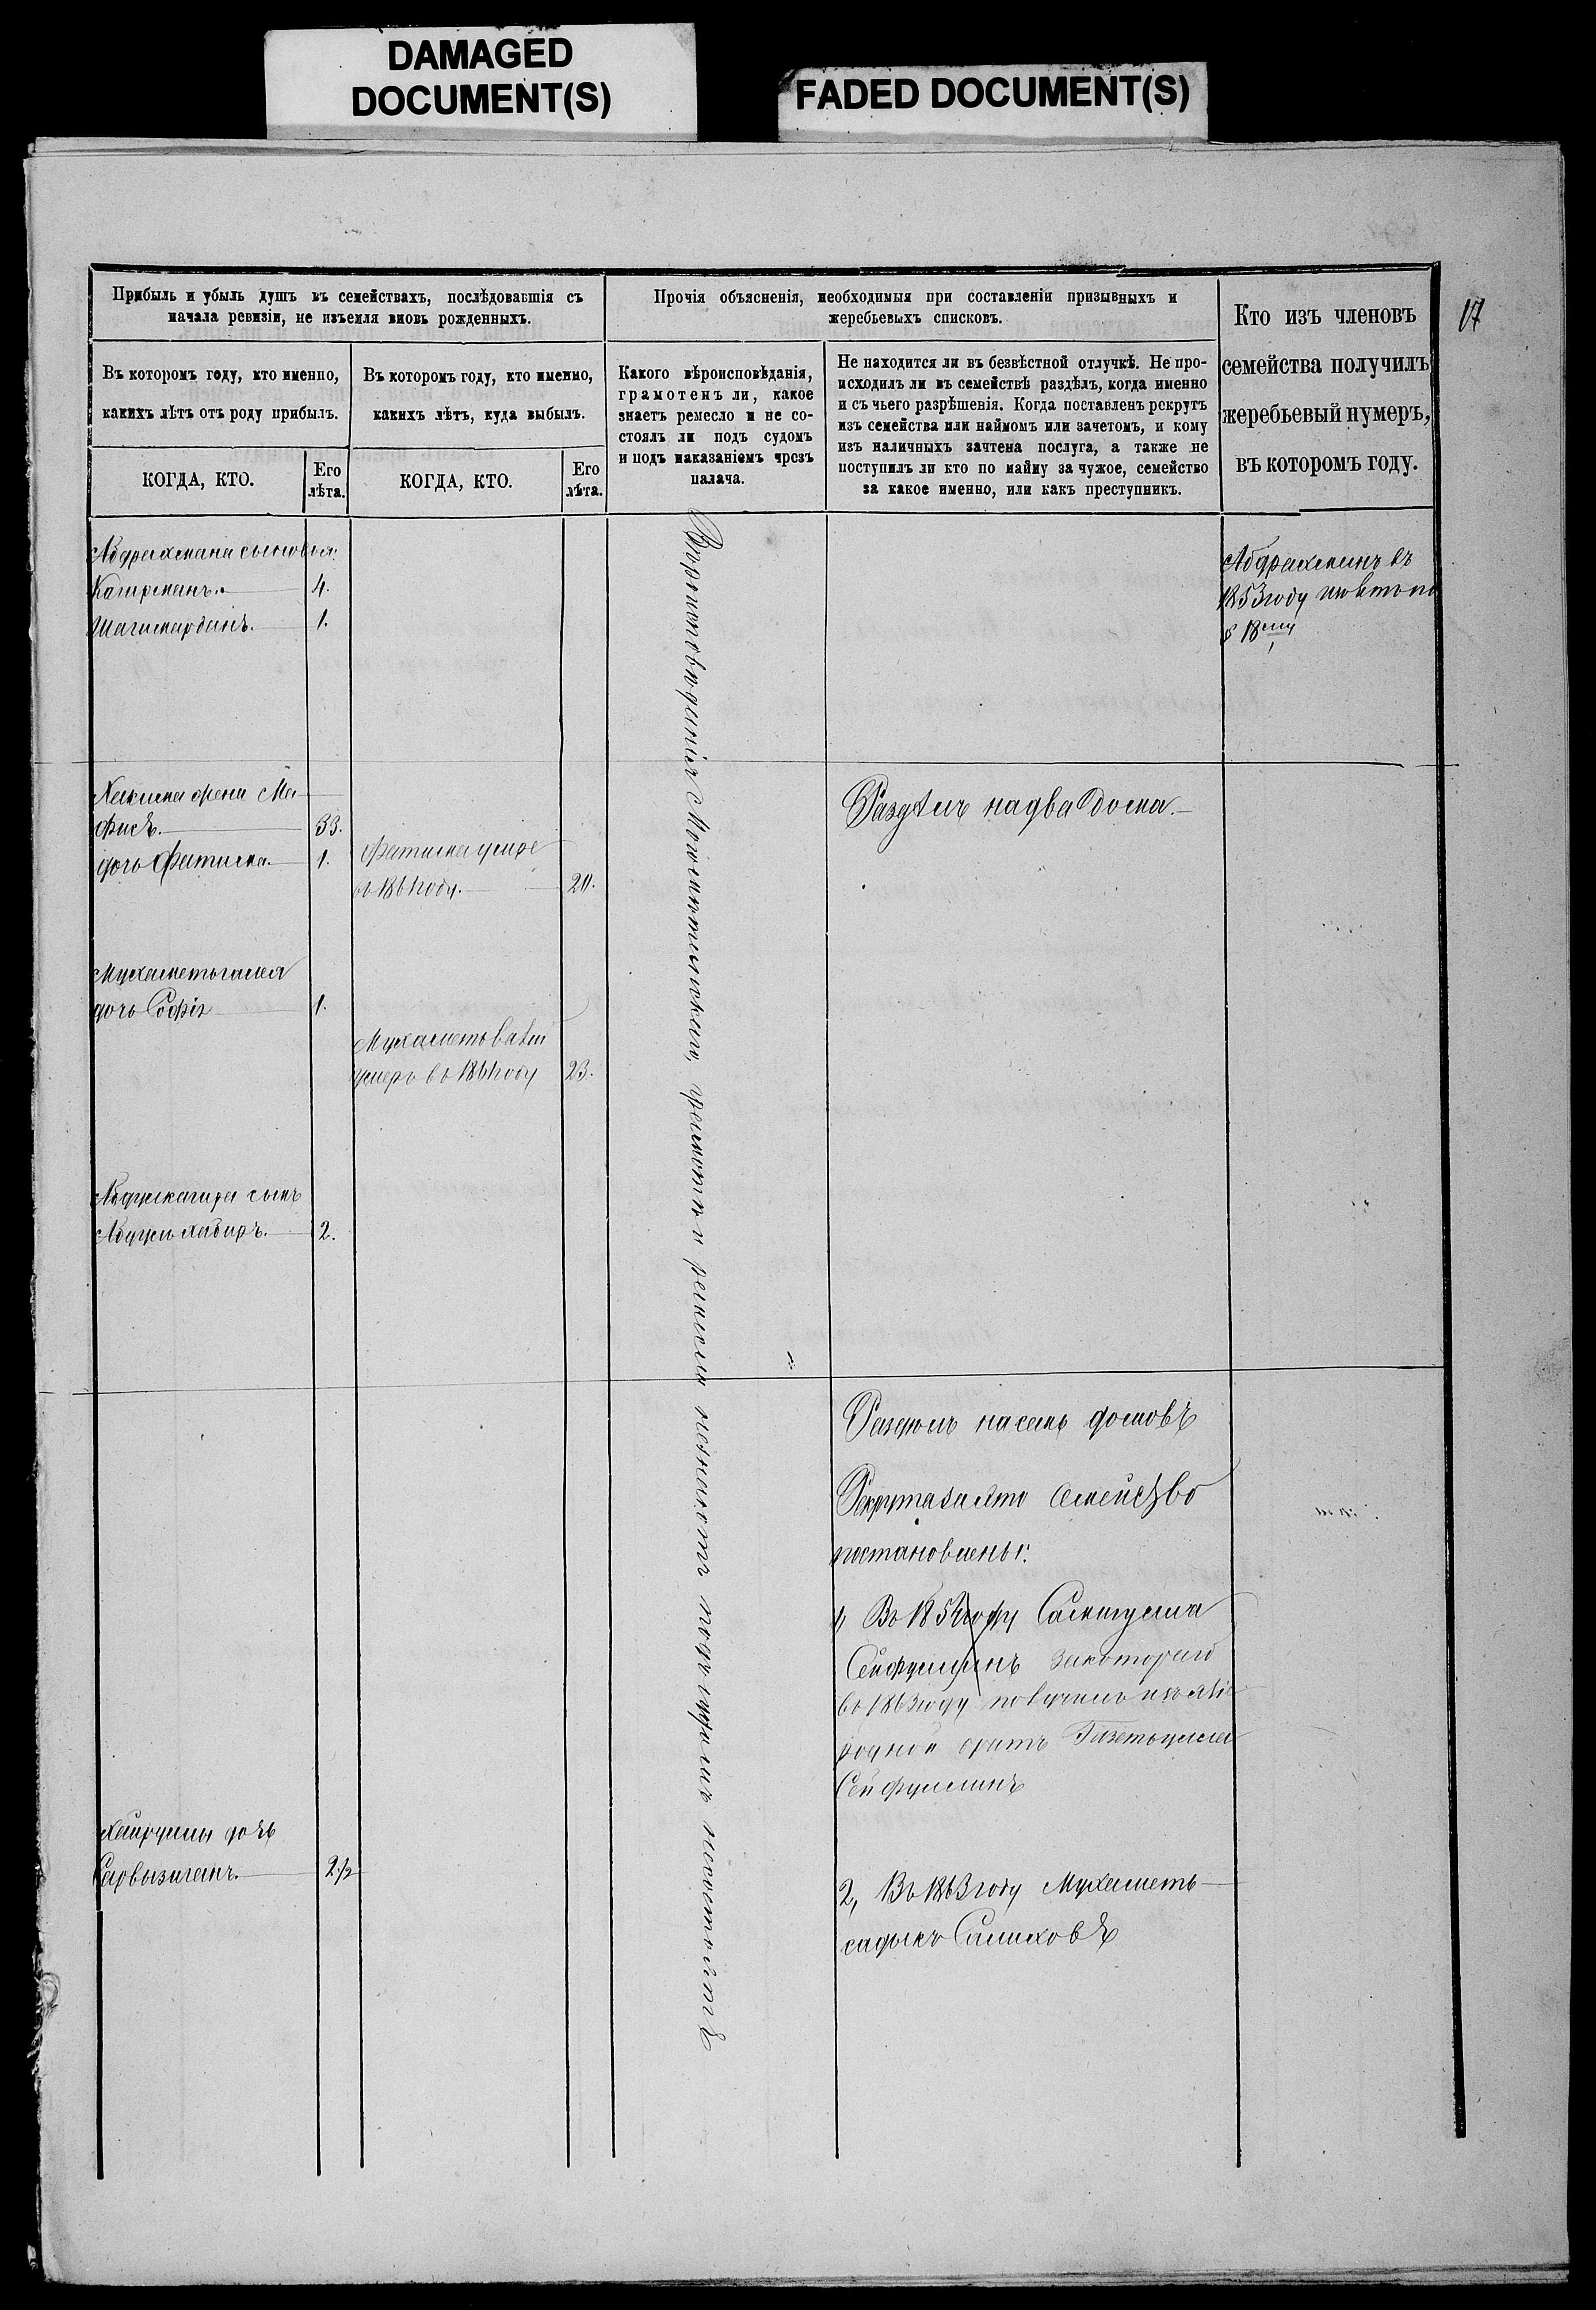 DAMAGED
DOCUMENT(S)
FADED DOCUMENT(S)
17
Прибыль и убыль душъ въ семействахъ, послѣдовавшія съ
начала ревизіи, не изъемля вновь рожденныхъ.
Въ которомъ году, кто именно,
какихъ лѣтъ отъ роду прибылъ.
КОГДА, КТО.
Его
лѣта.
Въ которомъ году, кто именно,
какихъ лѣтъ, куда выбылъ.
КОГДА, КТО.
Его
лѣта.
Прочія объясненія, необходимыя при составленіи призывныхъ и
жеребьевыхъ списковъ.
Какого вѣроисповѣданія,
грамотенъ ли, какое
знаетъ ремесло и не со-
стоялъ ли подъ судомъ
и подъ наказаніемъ чрезъ
палача.
Не находится ли въ безвѣстной отлучкѣ. Не про-
исходилъ ли въ семействѣ раздѣлъ, когда именно
и съ чьего разрѣшенія. Когда поставленъ рекрутъ
изъ семейства или наймомъ или зачетомъ, и кому
изъ наличныхъ зачтена послуга, а также не
поступилъ ли кто по найму за чужое, семейство
за какое именно, или какъ преступникъ.
Кто изъ членовъ
семейства получилъ
жеребьевый нумеръ,
въ которомъ году.
Абдрахмана сыновья:
Кагирманъ. 4.
Шагимарданъ. 1.
Абдрахманъ въ
1853 году
Хакима жена Ма-
фисѣ. 33.
дочь Фатима. 1.
Фатима умре
въ 1861 году. 20.
Раздѣлъ на два дома.
Мухаметьгалея
дочь Софія 1.
Мухаметьвалей
умеръ въ 1861 году 23.
Абдулкагира сынъ
Абдулхабиръ. 2.
Вероисповѣданія Могометанскаго, грамоты и ремесла незнаютъ подъ судомъ несостоятъ
Раздѣлъ на семь домовъ
Рекрута за это Семейство
постановлены:
1, Въ 185 году Салимгулла
Сейфуллинъ за котораго
въ 1863 году получилъ
родной братъ Гизетьулла
Сейфуллинъ
Хайруллы дочь
2 1/2
2, Въ 1863 году Мухаметь-
садыкъ Салиховъ